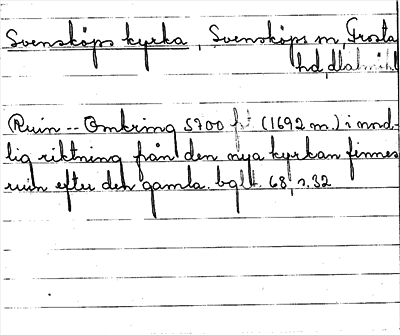 Svensköps kyrka, Svensköps sn, Frosta
hd,
Ruin -- Omkring 5700 f: (1692 m.) i nord-
lig riktning från den nya kyrkan finnes
ruin efter den gamla. 68, s. 32